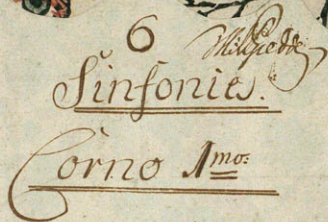 6
Sinfonie.
Corno 1mo: